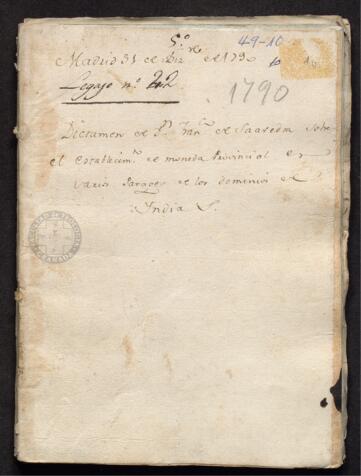 5.º 49-10
Madrid 31 de Diz.re de 1790
10
Legajo nº 22
1790
Dictamen de Dn. Fran.co de Saavedra sobre
el establecim.to de moneda Provincial en
varios Parages de los dominios de
Indias.